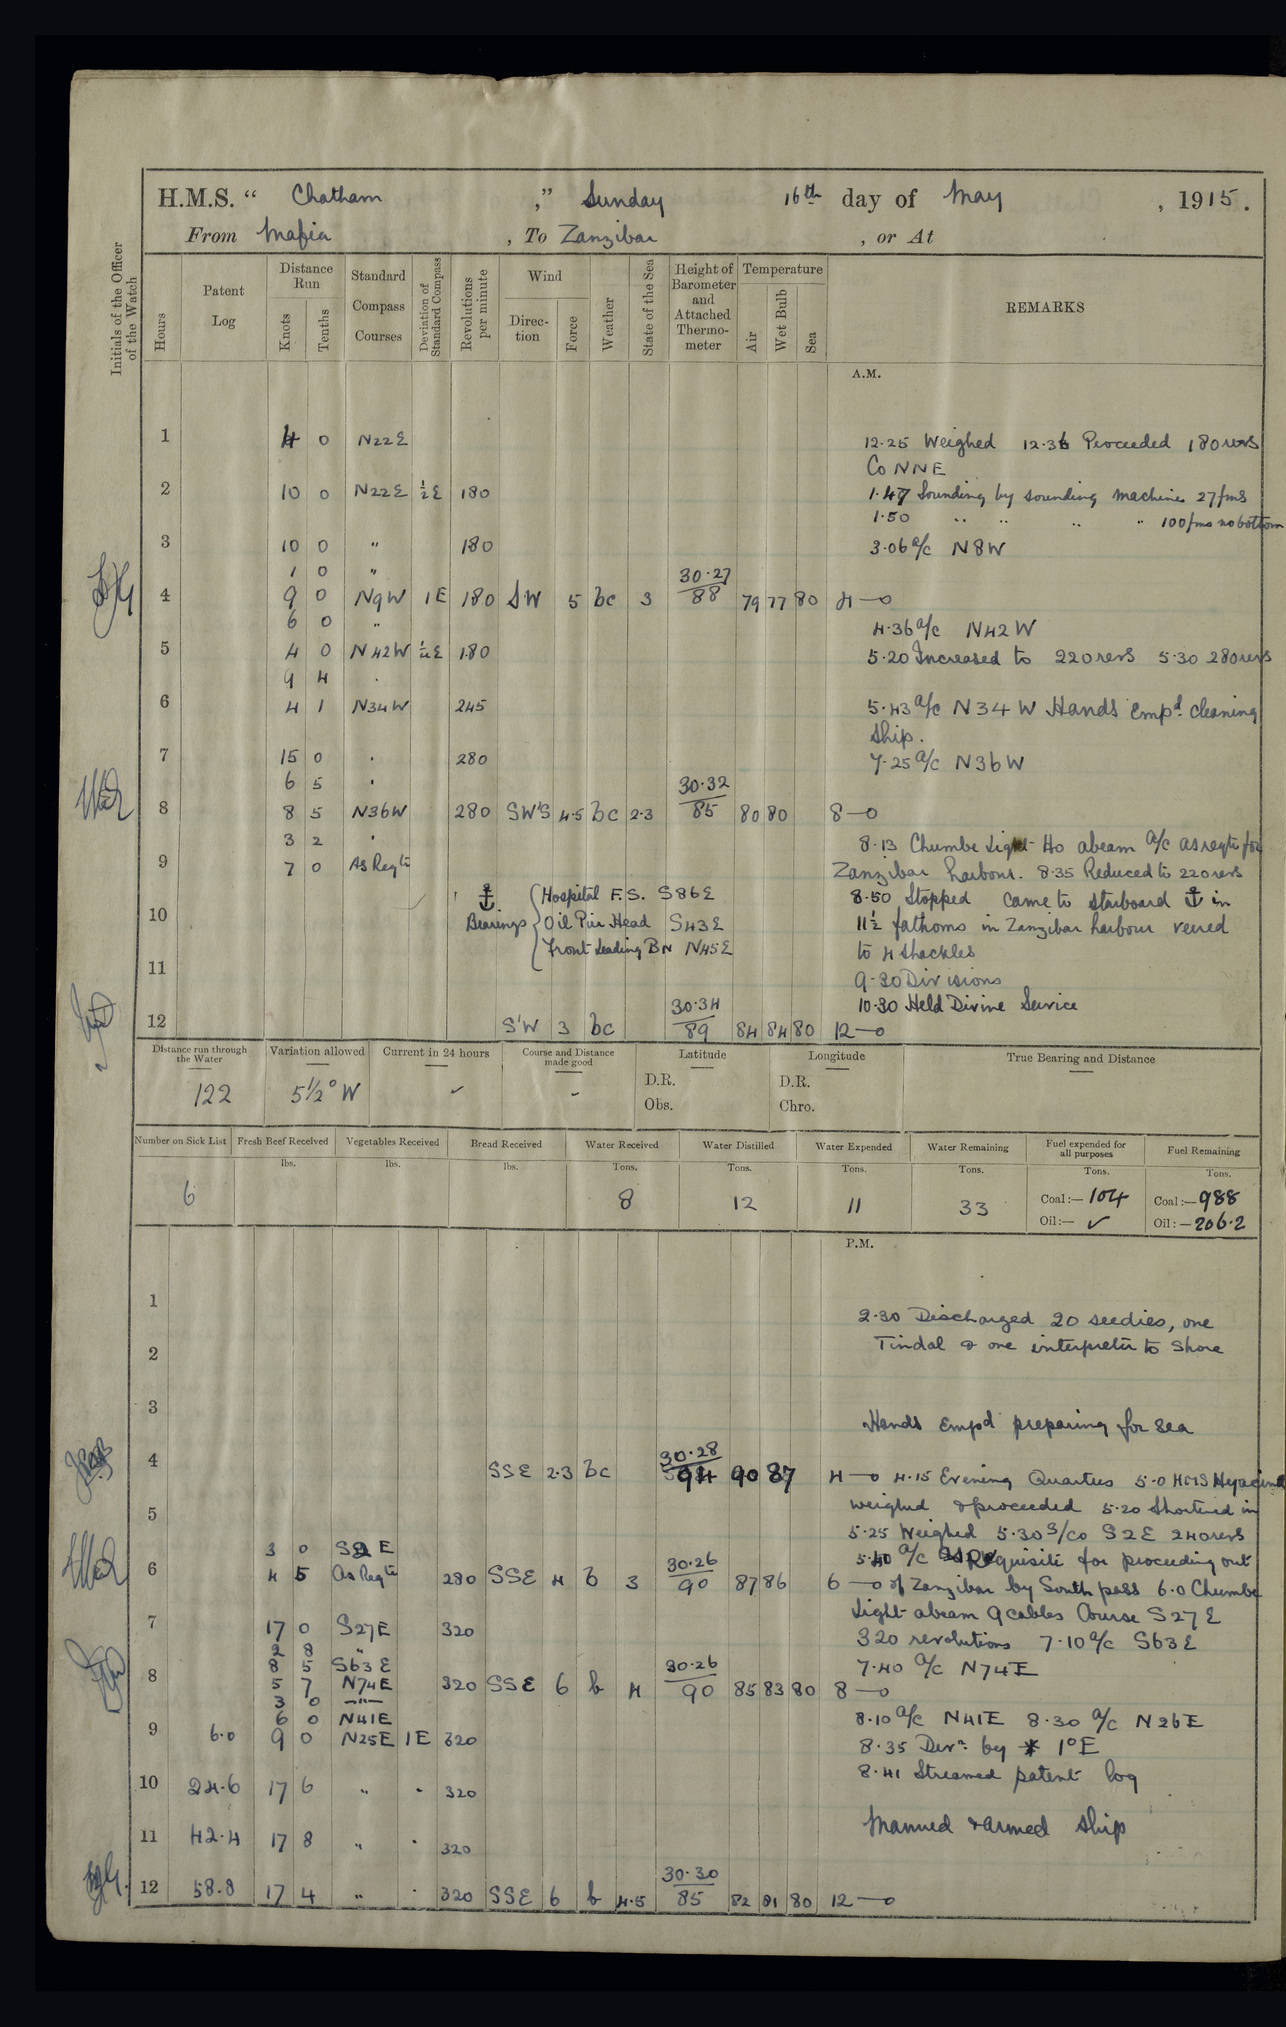 H.M.S. “ Chatham ,” Sunday 16th day of May , 1915.
From Mafia , To Zanzibar , or At
Initials of the Officer of the Watch
Hours
Patent Log
Distance Run
Knots
Tenths
Standard Compass Courses
Deviation of Standard Compass
Revolutions per minute
Wind
Direction
Force
Weather
State of the Sea
Height of Barometer and Attached Thermometer
Temperature
Air
Wet Bulb
Sea
REMARKS
A.M.
1 4 0 N22E 12.25 Weighed 12.36 Proceeded 180 revs
Co NNE
2 10 0 N22E ½E 180 1.47 Sounding by sounding machine 27 fms
1.50 " " " " 100 fms no bottom
3 10 0 " 180 3.06 a/c N8W
1 0 "
30.27
4 9 0 N9W 1E 180 SW 5 bc 3 88 79 77 80 4—0
6 0 " 4.36 a/c N42W
5 4 0 N42W ½E 180 5.20 Increased to 220 revs 5.30 280 revs
9 4 "
6 4 1 N34W 245 5.43 a/c N34W Hands Empd. cleaning
ship.
7 15 0 " 280 7.25 a/c N36W
6 5 " 30.32
8 8 5 N36W 280 SW'S 4.5 bc 2.3 85 80 80 8—0
3 2 " 8.13 Chumbe Light Ho abeam a/c as reqte for
9 7 0 As Reqte Zanzibar harbour. 8.35 Reduced to 220 revs
Hospital F.S. S86E 8.50 Stopped came to starboard ⚓ in
10 ⚓ Bearings Oil Pier Head S43E 11½ fathoms in Zanzibar harbour veered
Front Leading Bn N45E to 4 shackles
11 9.30 Divisions
30.34 10.30 Held Divine Service
12 S'W 3 bc 89 84 84 80 12—0
Distance run through the Water
Variation allowed
Current in 24 hours
Course and Distance made good
Latitude
Longitude
True Bearing and Distance
122 5½° W ✓ –
D.R. D.R.
Obs. Chro.
Number on Sick List Fresh Beef Received Vegetables Received Bread Received Water Received Water Distilled Water Expended Water Remaining Fuel expended for all purposes Fuel Remaining
lbs. lbs. lbs. Tons. Tons. Tons. Tons. Tons. Tons.
6 8 12 11 33 Coal:— 104 Coal:— 988
Oil:— ✓ Oil:— 206.2
P.M.
1 2.30 Discharged 20 seedies, one
2 Tindal & one interpreter to shore
3 Hands empd preparing for sea
30.28
4 SSE 2.3 bc 94 90 87 4—0 4.15 Evening Quarters 5.0 HMS Hyacinth
weighed & proceeded 5.20 Shortened in
5 5.25 Weighed 5.30 S/Co S2E 240 revs
3 0 S2E 30.26 5.40 a/c as requisite for proceeding out
6 4 5 As Reqte 280 SSE 4 b 3 90 87 86 6—0 of Zanzibar by South pass 6.0 Chumbe
Light abeam 9 cables Course S27E
7 17 0 S27E 320 320 revolutions 7.10 a/c S63E
2 8 "
8 5 S63E 30.26 7.40 a/c N74E
8 5 7 N74E 320 SSE 6 b 4 90 85 83 80 8—0
3 0 —"—
6 0 N41E 8.10 a/c N41E 8.30 a/c N26E
9 6.0 9 0 N25E 1E 320 8.35 Devn. by * 1°E
8.41 Streamed patent log
10 24.6 17 6 " " 320
Manned & armed ship
11 42.4 17 8 " " 320
30.30
12 58.8 17 4 " " 320 SSE 6 b 4.5 85 82 81 80 12—0